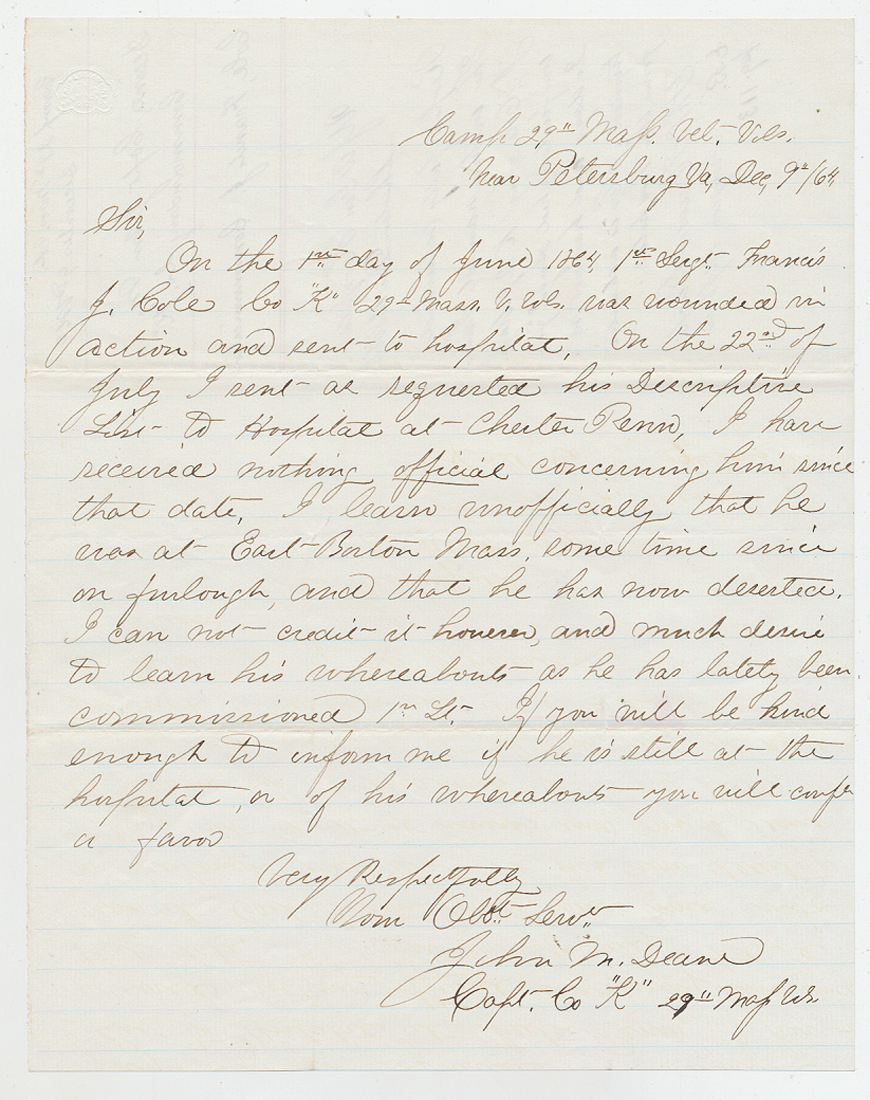 Camp 29" Mass. Vet. Vols.
Near Petersburg Va, Dec, 9"/64,
Sir,
On the 1st day of June 1864, 1st Sergt. Francis
J. Cole Co "K" 29" Mass. V. Vols. was wounded in
action and sent to hospital. On the 22nd of
July I sent as requested his Descriptive
List to Hospital at Chester Penn, I have
received nothing official concerning him since
that date. I learn unofficially that he
was at East Boston Mass. some time since
on furlough, and that he has now deserted.
I can not credit it however, and much desire
to learn his whereabouts as he has lately been
commissioned 1st Lt. If you will be kind
enough to inform me if he is still at the
hospital, or of his whereabouts you will confer
a favor
Very Respectfully
Your Obdt Servt
John M. Deane
Capt. Co "K" 29" Mass Vols.